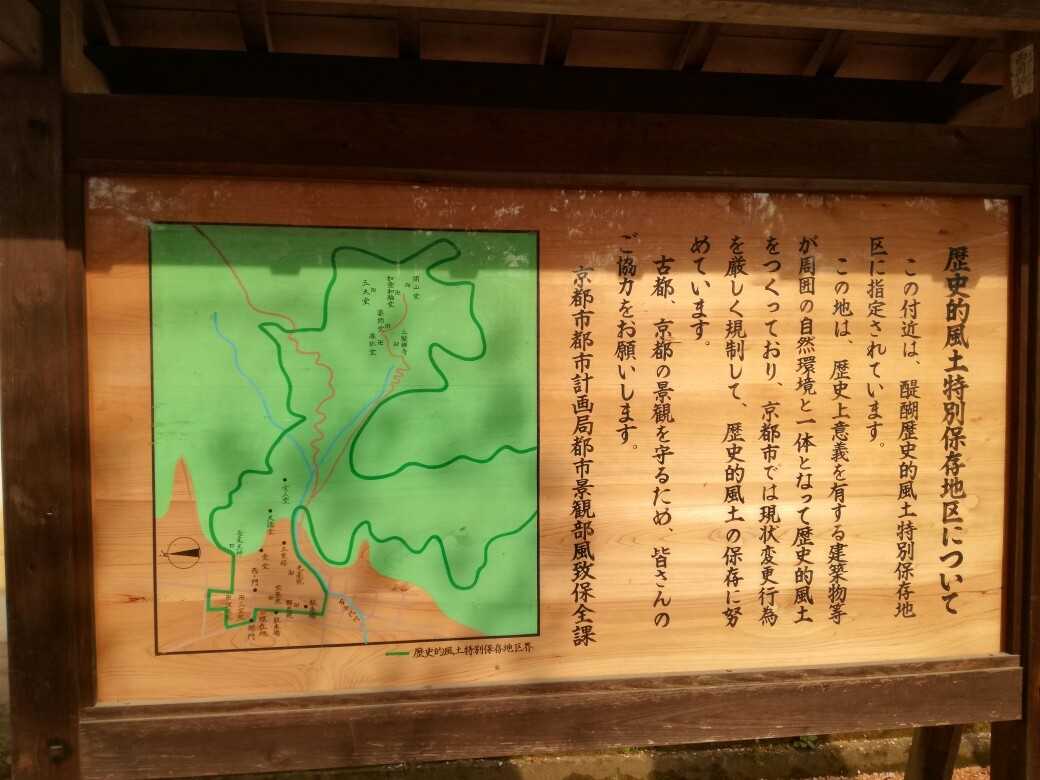 歴史的風土特別保存地区について
この付近は、醍醐歴史的風土特別保存地
区に指定されています。
この地は、歴史上意義を有する建築物等
が周囲の自然環境と一体となって歴史的風土
をつくっており、京都市では現状変更行為
を厳しく規制して、歴史的風土の保存に努
めています。
古都、京都の景観を守るため、皆さんの
ご協力をお願いします。
京都市都市計画局都市景観部風致保全課
開山堂
如意輪堂
五大堂
薬師堂
准胝堂
上醍醐寺
女人堂
金堂
総門
現在地
駐車場
歴史的風土特別保存地区界